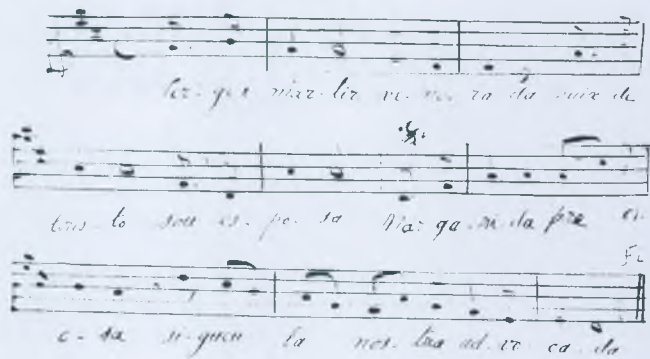 ver-ge mar-tir ve-ne-ra-da cuix de
cris-to sou es-po-sa Mar-ga-ri-da pre ci-
Fi
o-sa si-gueu la nos-tra ad-vo-ca-da